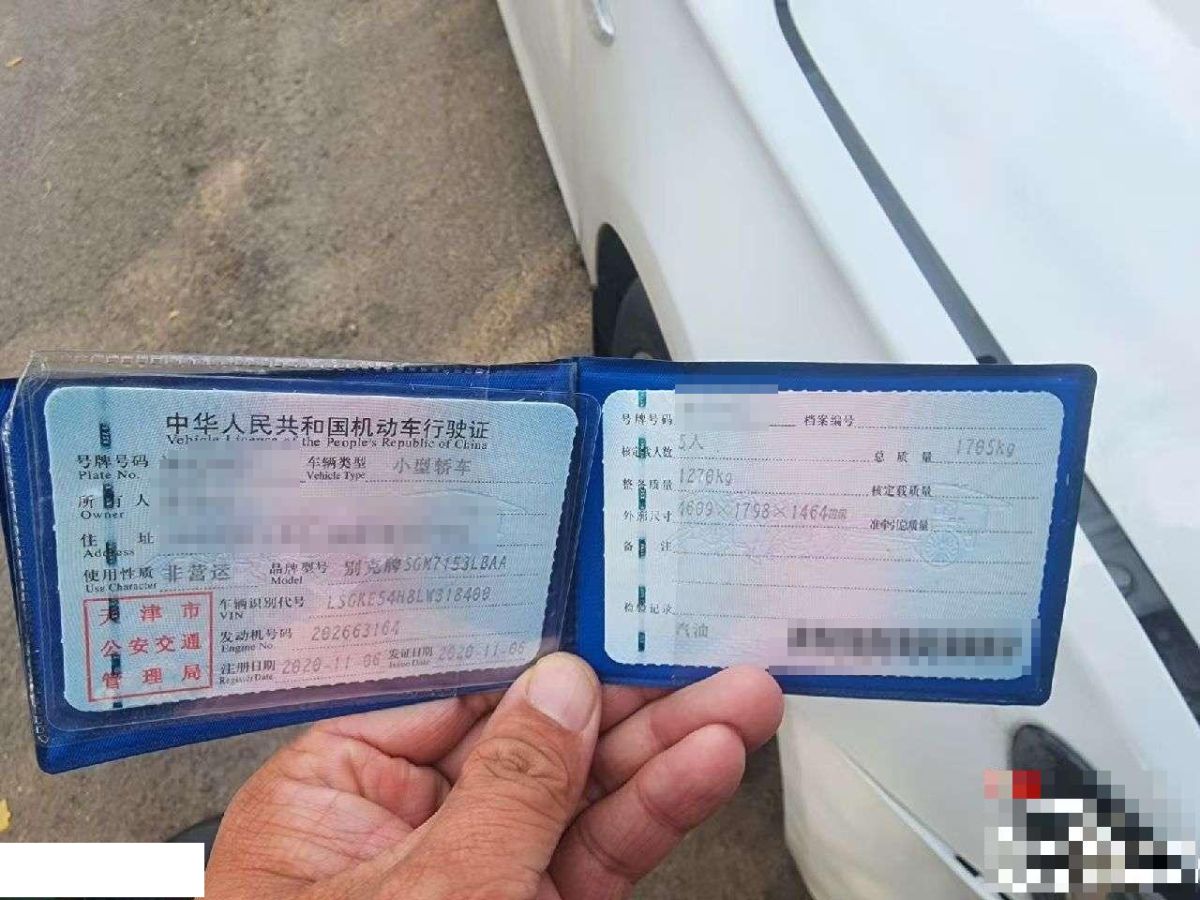 中华人民共和国机动车行驶证
Vehicle License of the People's Republic of China
号牌号码
Plate No.
车辆类型 小型轿车
Vehicle Type
所有人
Owner
住 址
Address
使用性质 非营运
Use Character
品牌型号 别克牌SGM7153LBAA
Model
车辆识别代号 LSGKE54H8LW318400
VIN
发动机号码 202663164
Engine No.
注册日期 2020-11-06
Register Date
发证日期 2020-11-06
Issue Date
天津市
公安交通
管理局
号牌号码
档案编号
核定载人数 5人
总质量 1705kg
整备质量 1270kg
核定载质量
外廓尺寸 4609×1798×1464mm
准牵引总质量
备 注
检验记录
汽油